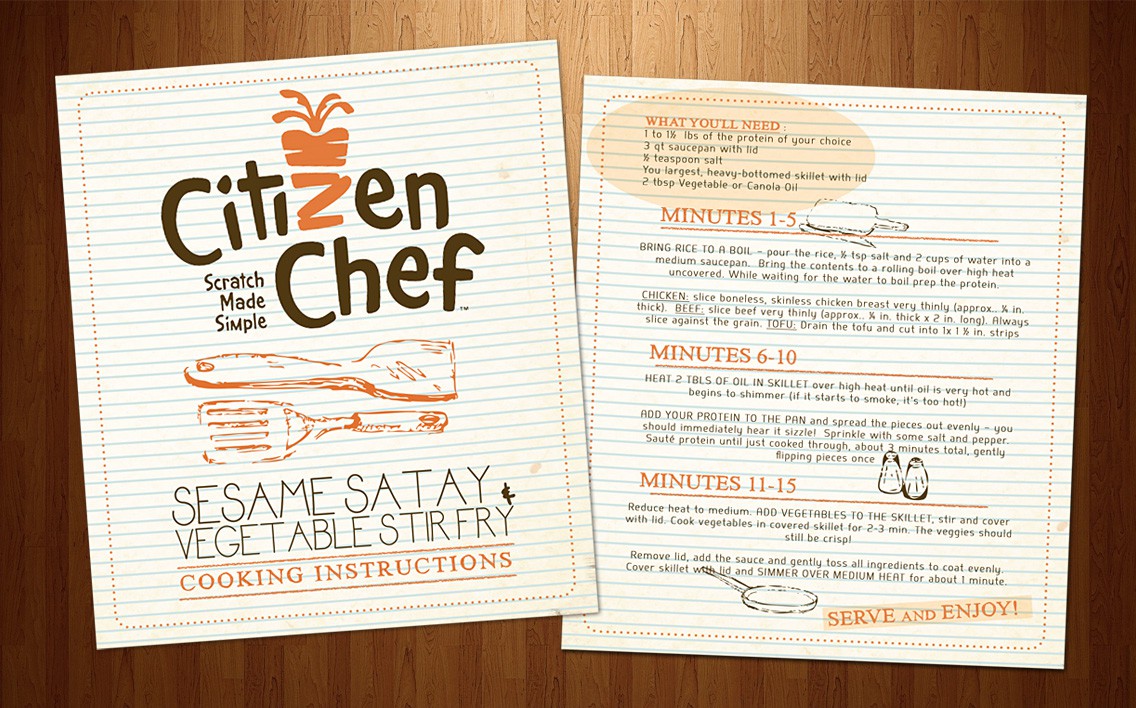 Citizen
Chef
Scratch
Made
Simple
™
SESAME SATAY &
VEGETABLE STIR FRY
COOKING INSTRUCTIONS
WHAT YOU'LL NEED :
1 to 1½ lbs of the protein of your choice
3 qt saucepan with lid
½ teaspoon salt
You largest, heavy-bottomed skillet with lid
2 tbsp Vegetable or Canola Oil
MINUTES 1-5
BRING RICE TO A BOIL – pour the rice, ½ tsp salt and 2 cups of water into a
medium saucepan. Bring the contents to a rolling boil over high heat
uncovered. While waiting for the water to boil prep the protein.
CHICKEN: slice boneless, skinless chicken breast very thinly (approx.. ¼ in.
thick). BEEF: slice beef very thinly (approx.. ¼ in. thick x 2 in. long). Always
slice against the grain. TOFU: Drain the tofu and cut into 1x 1 ½ in. strips
MINUTES 6-10
HEAT 2 TBLS OF OIL IN SKILLET over high heat until oil is very hot and
begins to shimmer (if it starts to smoke, it's too hot!)
ADD YOUR PROTEIN TO THE PAN and spread the pieces out evenly – you
should immediately hear it sizzle! Sprinkle with some salt and pepper.
Sauté protein until just cooked through, about 3 minutes total, gently
flipping pieces once
MINUTES 11-15
Reduce heat to medium. ADD VEGETABLES TO THE SKILLET, stir and cover
with lid. Cook vegetables in covered skillet for 2-3 min. The veggies should
still be crisp!
Remove lid, add the sauce and gently toss all ingredients to coat evenly.
Cover skillet with lid and SIMMER OVER MEDIUM HEAT for about 1 minute.
SERVE AND ENJOY!